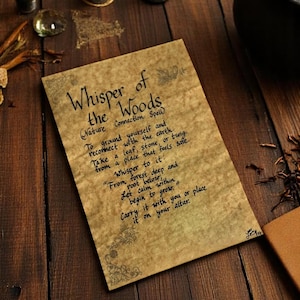 Whisper of
the Woods
(Nature Connection Spell)
To ground yourself and
reconnect with the earth
Take a leaf, stone, or twig
from a place that feels safe.
Whisper to it
From forest deep and
root below,
Let calm within
begin to grow.
Carry it with you or place
it on your altar.